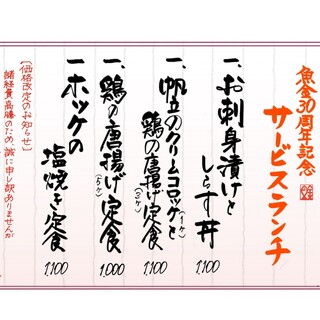 魚金30周年記念
サービスランチ
一、お刺身漬けと
しらす丼
1,100
一、帆立のクリームコロッケ(一ケ)と
鶏の唐揚げ(三ケ)定食
1,100
一、鶏の唐揚げ(五ケ)定食
1,000
一、ホッケの
塩焼き定食
1,100
[価格改定のお知らせ]
諸経費高騰のため、誠に申し訳ありませんが